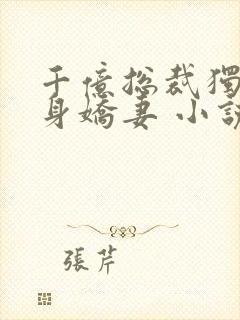 千億總裁獨
身嬌妻 小說
張芹